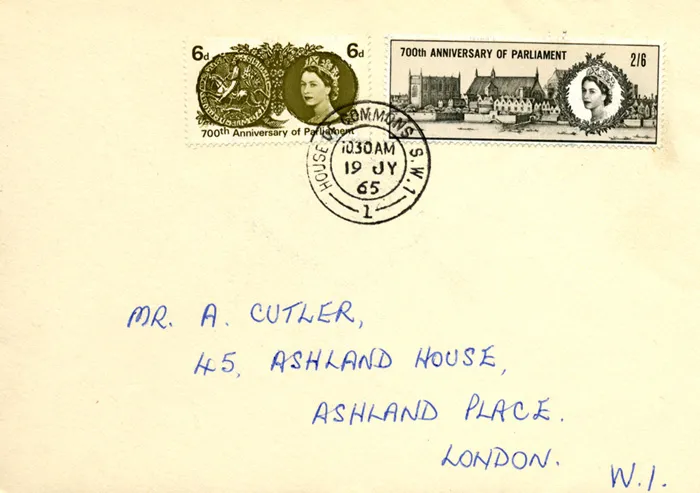 6d 6d
700th Anniversary of Parliament
700th ANNIVERSARY OF PARLIAMENT 2/6
HOUSE OF COMMONS S.W.1.
10.30AM
19 JY
65
1
MR. A. CUTLER,
45, ASHLAND HOUSE,
ASHLAND PLACE.
LONDON.
W.1.